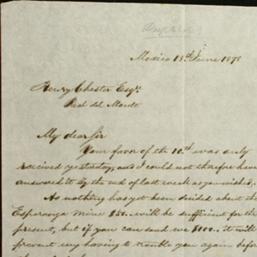 Mexico 13th June 1878
Henry Chester Esqr.
Real del Monte
My dear Sir
Your favor of the 10th was only
received yesterday, and I could not therefore have
answered it by the end of last week as you wished.
As nothing has yet been decided about the
Esperanza mine $50. will be sufficient for the
present, but if you can send me $100. it will
prevent my having to trouble you again before